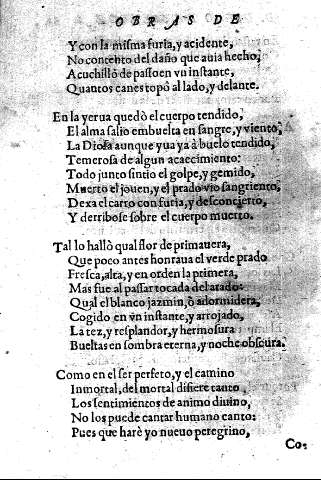 OBRAS DE
Y con la misma furia, y acidente,
No contento del daño que auia hecho,
Acuchillò de passo en vn instante,
Quantos canes topô al lado, y delante.
En la yerua quedò el cuerpo tendido,
El alma salio embuelta en sangre, y viento,
La Diosa aunque yua ya à buelo tendido,
Temerosa de algun acaecimiento:
Todo junto sintio el golpe, y gemido,
Muerto el jouen, y el prado vio sangriento,
Dexa el carro con furia, y desconcierto,
Y derribose sobre el cuerpo muerto.
Tal lo hallò qual flor de primauera,
Que poco antes honraua el verde prado
Fresca, alta, y en orden la primera,
Mas fue al passar tocada del arado:
Qual el blanco jazmin, ò adormidera,
Cogido en vn instante, y arrojado,
La tez, y resplandor, y hermosura
Bueltas en sombra eterna, y noche obscura.
Como en el ser perfeto, y el camino
Inmortal, del mortal difiere tanto
Los sentimientos de animo diuino,
No los puede cantar humano canto:
Pues que harè yo nueuo peregrino,
Co-